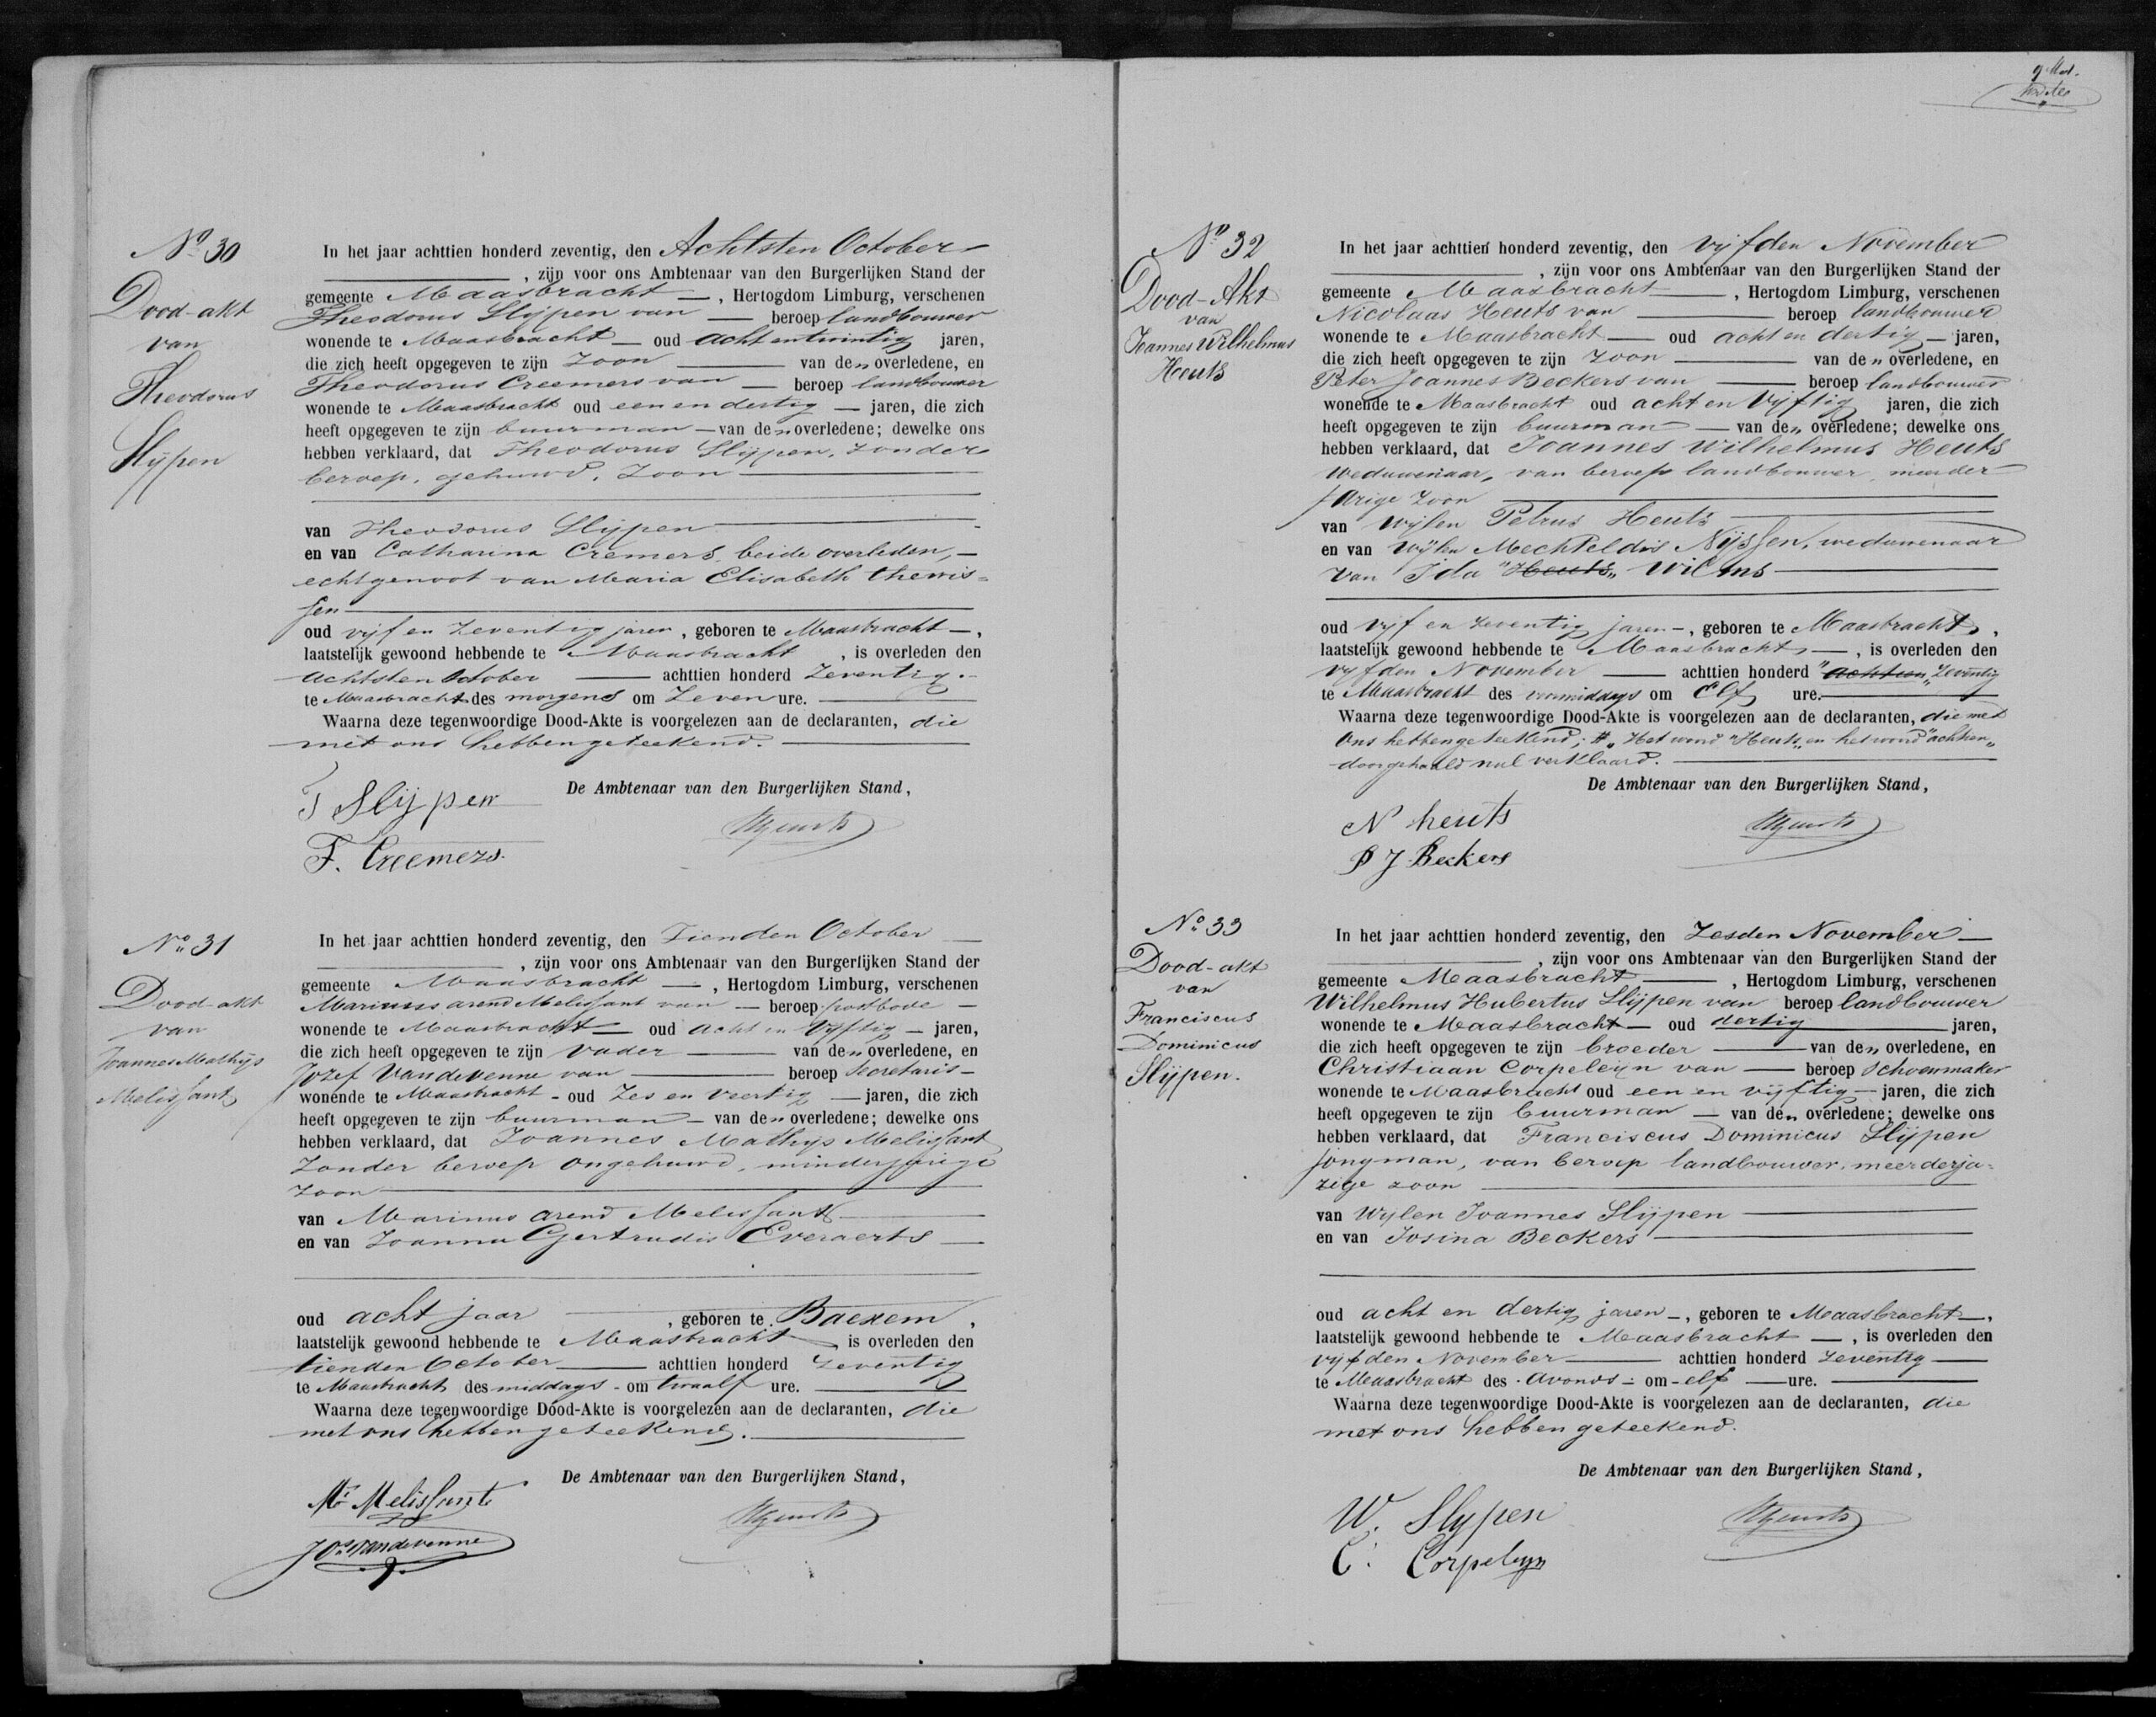 No 30
Dood-akt
van
Theodorus
Slijpen
In het jaar achttien honderd zeventig, den Achtsten October
, zijn voor ons Ambtenaar van den Burgerlijken Stand der
gemeente Maasbracht , Hertogdom Limburg, verschenen
Theodorus Slijpen van beroep landbouwer
wonende te Maasbracht oud achtentwintig jaren,
die zich heeft opgegeven te zijn zoon van den overledene, en
Theodorus Creemers van beroep landbouwer
wonende te Maasbracht oud een en dertig jaren, die zich
heeft opgegeven te zijn buurman van den overledene; dewelke ons
hebben verklaard, dat Theodorus Slijpen, zonder
beroep, gehuwd, zoon
van Theodorus Slijpen
en van Catharina Cremers, beide overleden,
echtgenoot van Maria Elisabeth thewis=
sen
oud vijf en zeventig jaren, geboren te Maasbracht,
laatstelijk gewoond hebbende te Maasbracht, is overleden den
achtsten October achttien honderd zeventig.
te Maasbracht des morgens om zeven ure.
Waarna deze tegenwoordige Dood-Akte is voorgelezen aan de declaranten, die
met ons hebben geteekend.
De Ambtenaar van den Burgerlijken Stand,
T Slijpen
T. Creemers.
No 31
Dood-akt
van
Joannes Mathijs
Melissant
In het jaar achttien honderd zeventig, den Tienden October
, zijn voor ons Ambtenaar van den Burgerlijken Stand der
gemeente Maasbracht , Hertogdom Limburg, verschenen
Marinus arend Melissant van beroep postbode
wonende te Maasbracht oud acht en vijftig jaren,
die zich heeft opgegeven te zijn vader van den overledene, en
Jozef Vandevenne van beroep Secretaris
wonende te Maasbracht oud zes en veertig jaren, die zich
heeft opgegeven te zijn buurman van den overledene; dewelke ons
hebben verklaard, dat Joannes Mathijs Melissant
zonder beroep ongehuwd, minderjarige
zoon
van Marinus arend Melissant
en van Joanna Gertrudis Everaerts
oud acht jaar , geboren te Baexem,
laatstelijk gewoond hebbende te Maasbracht is overleden den
tienden October achttien honderd zeventig
te Maasbracht des middags om twaalf ure.
Waarna deze tegenwoordige Dood-Akte is voorgelezen aan de declaranten, die
met ons hebben geteekend.
De Ambtenaar van den Burgerlijken Stand,
Mr Melissant
Jos Vandevenne
No 32
Dood-Akt
van
Joannes Wilhelmus
Heuts
In het jaar achttien honderd zeventig, den vijfden November
, zijn voor ons Ambtenaar van den Burgerlijken Stand der
gemeente Maasbracht , Hertogdom Limburg, verschenen
Nicolaas Heuts van beroep landbouwer
wonende te Maasbracht oud acht en dertig jaren,
die zich heeft opgegeven te zijn zoon van den overledene, en
Peter Joannes Beckers van beroep landbouwer
wonende te Maasbracht oud acht en vijftig jaren, die zich
heeft opgegeven te zijn buurman van den overledene; dewelke ons
hebben verklaard, dat Joannes Wilhelmus Heuts
weduwenaar, van beroep landbouwer, meerder
jarige zoon
van wijlen Petrus Heuts
en van wijlen Mechteldis Nijssen, weduwenaar
van Ida "Heuts" Wilms
oud vijf en zeventig jaren, geboren te Maasbracht,
laatstelijk gewoond hebbende te Maasbracht, is overleden den
vijfden November achttien honderd "achttien" zeventig
te Maasbracht des voormiddags om Elf ure.
Waarna deze tegenwoordige Dood-Akte is voorgelezen aan de declaranten, die met
ons hebben geteekend; Het word "Heuts" en het word "achttien"
doorgehaald nul verklaard.
De Ambtenaar van den Burgerlijken Stand,
N heuts
P J Beckers
No 33
Dood-akt
van
Franciscus
Dominicus
Slijpen.
In het jaar achttien honderd zeventig, den Zesden November
, zijn voor ons Ambtenaar van den Burgerlijken Stand der
gemeente Maasbracht , Hertogdom Limburg, verschenen
Wilhelmus Hubertus Slijpen van beroep landbouwer
wonende te Maasbracht oud dertig jaren,
die zich heeft opgegeven te zijn broeder van den overledene, en
Christiaan Corpeleijn van beroep Schoenmaker
wonende te Maasbracht oud een en vijftig jaren, die zich
heeft opgegeven te zijn buurman van den overledene; dewelke ons
hebben verklaard, dat Franciscus Dominicus Slijpen
jongman, van beroep landbouwer, meerderja=
rige zoon
van wijlen Joannes Slijpen
en van Josina Beckers
oud acht en dertig jaren, geboren te Maasbracht,
laatstelijk gewoond hebbende te Maasbracht, is overleden den
vijfden November achttien honderd zeventig
te Maasbracht des avonds om elf ure.
Waarna deze tegenwoordige Dood-Akte is voorgelezen aan de declaranten, die
met ons hebben geteekend.
De Ambtenaar van den Burgerlijken Stand,
W. Slypen
C. Corpeleyn